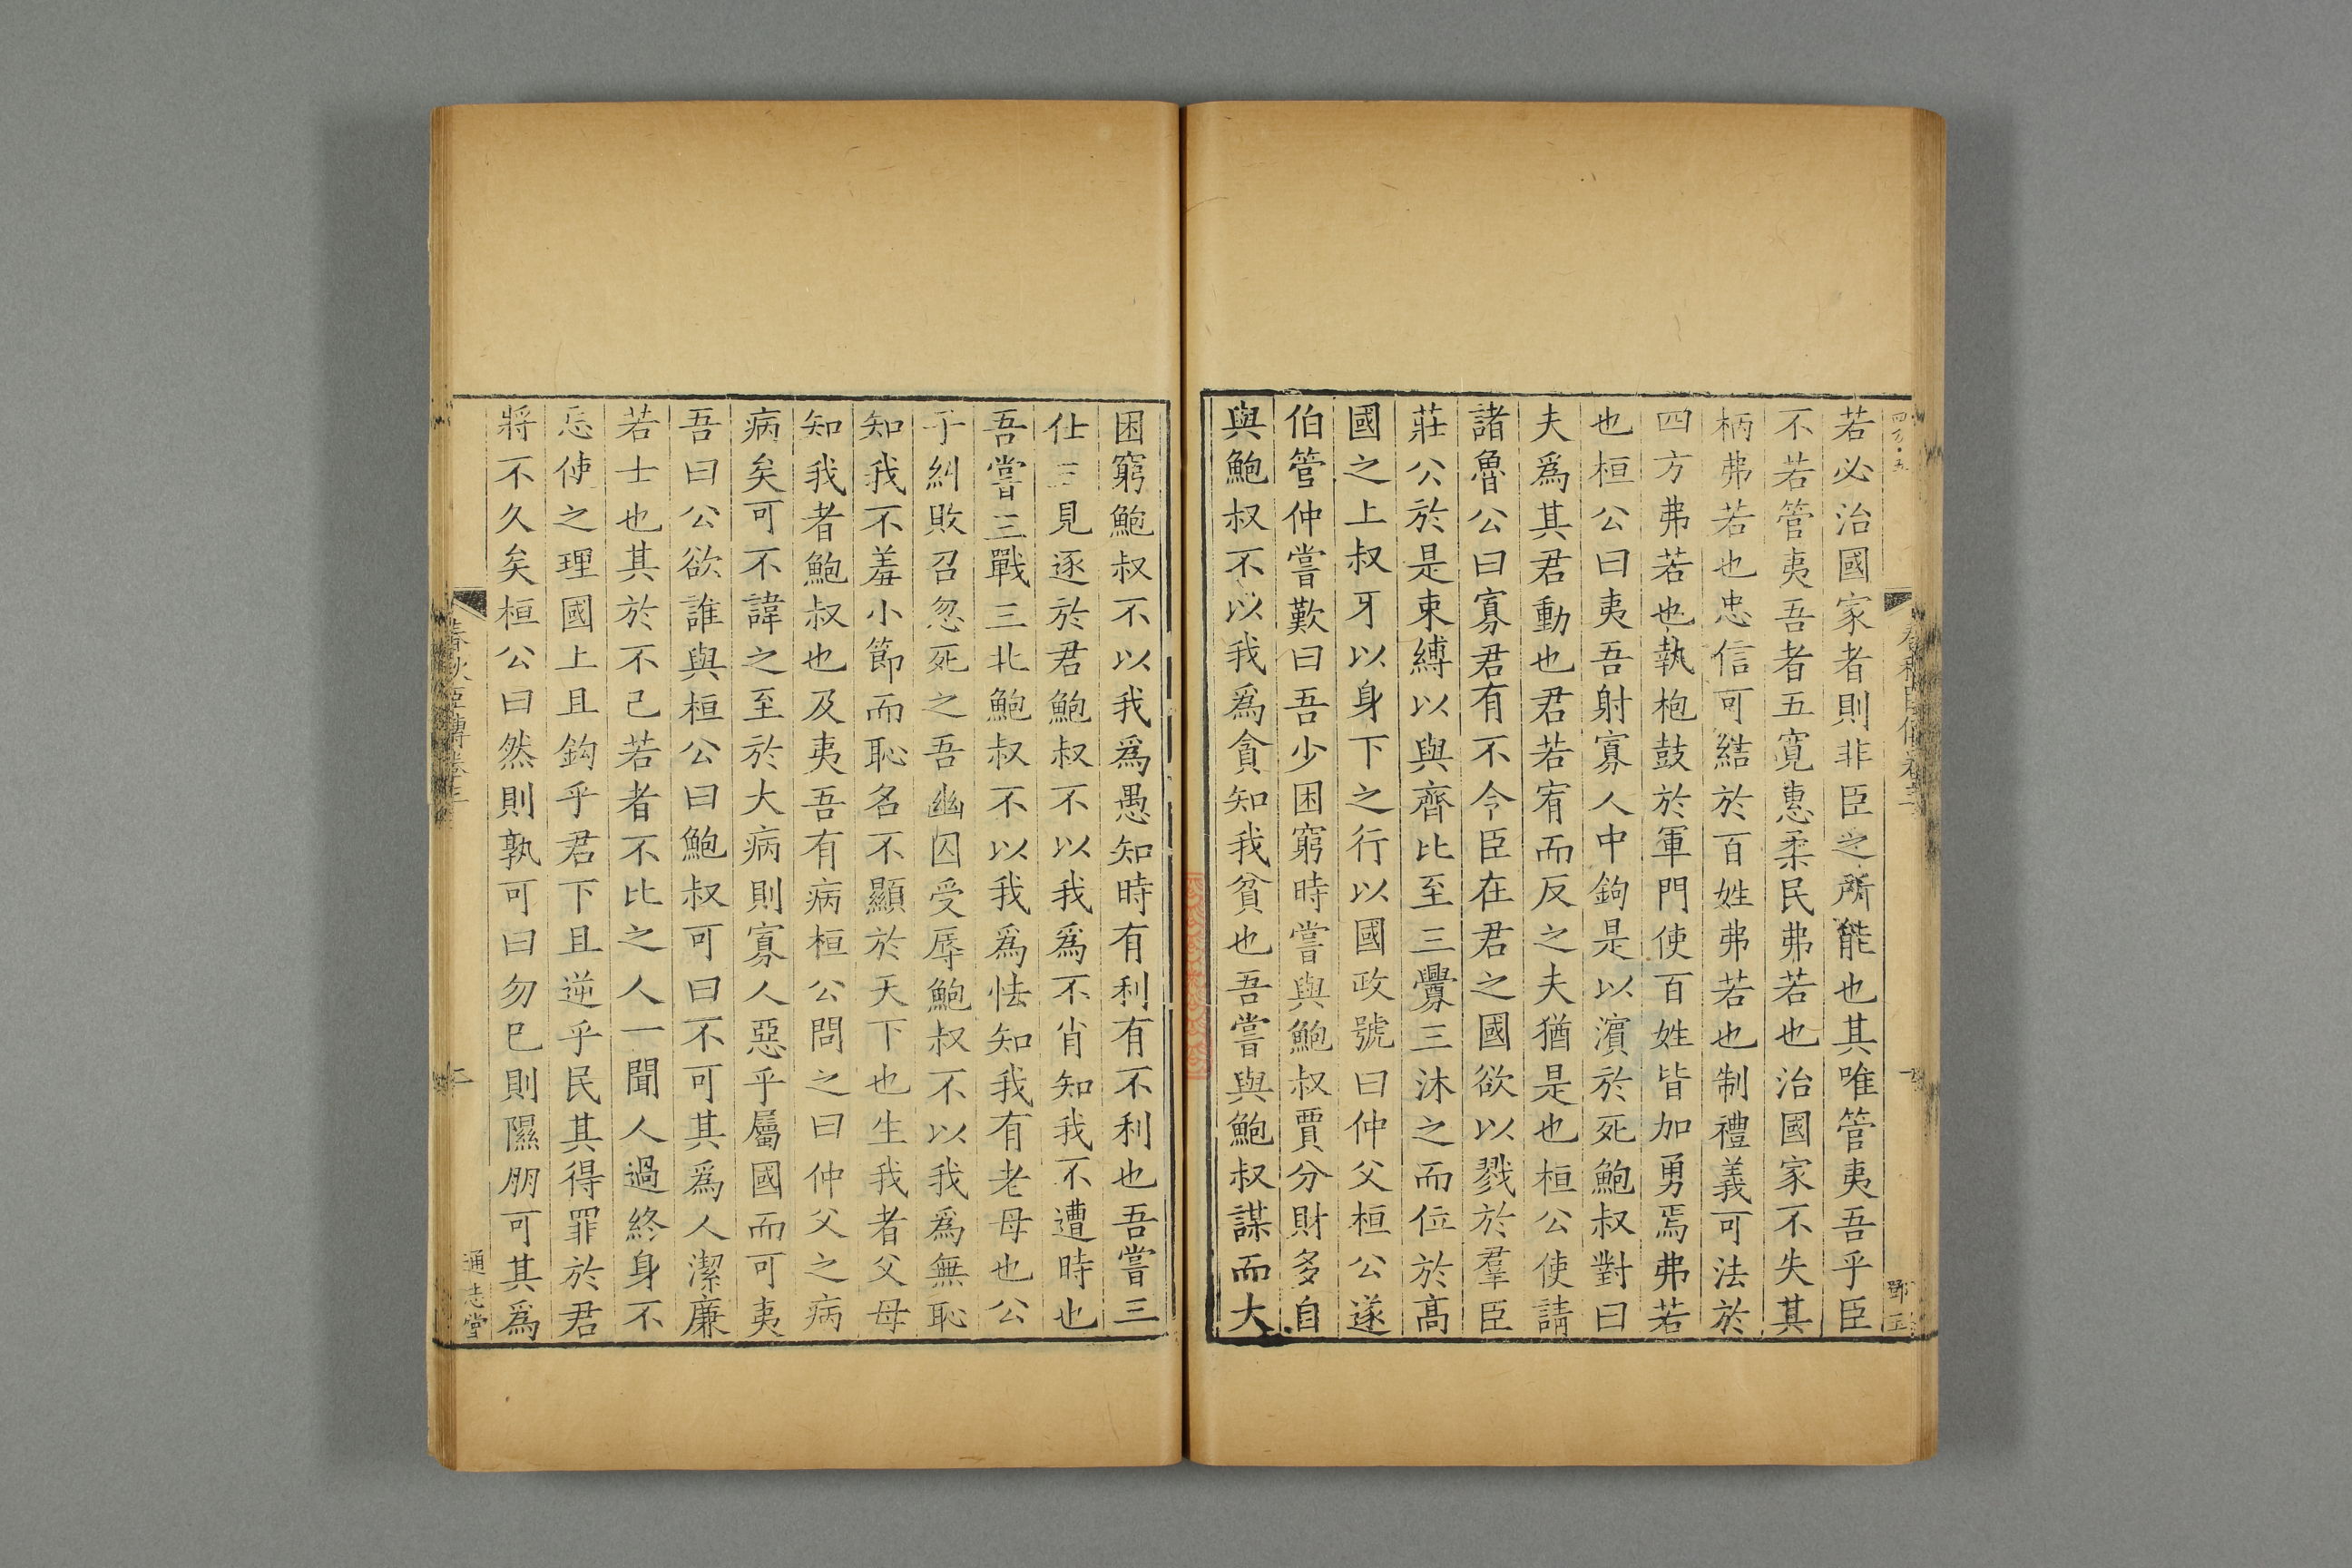 若必治國家者則非臣之所能也其唯管夷吾乎臣
不若管夷吾者五寛惠柔民弗若也治國家不失其
柄弗若也忠信可結於百姓弗若也制禮義可法於
四方弗若也執枹鼓於軍門使百姓皆加勇焉弗若
也桓公曰夷吾射寡人中鉤是以濵於死鮑叔對曰
夫爲其君動也君若宥而反之夫猶是也桓公使請
諸魯公曰寡君有不令臣在君之國欲以戮於羣臣
莊公於是束縛以與齊比至三釁三沐之而位於高
國之上叔牙以身下之行以國政號曰仲父桓公遂
伯管仲嘗歎曰吾少困窮時嘗與鮑叔賈分財多自
與鮑叔不以我爲貪知我貧也吾嘗與鮑叔謀而大
困窮鮑叔不以我爲愚知時有利有不利也吾嘗三
仕三見逐於君鮑叔不以我爲不肖知我不遭時也
吾嘗三戰三北鮑叔不以我爲怯知我有老母也公
子糾敗召忽死之吾幽囚受辱鮑叔不以我爲無恥
知我不羞小節而恥名不顯於天下也生我者父母
知我者鮑叔也及夷吾有病桓公問之曰仲父之病
病矣可不諱之至於大病則寡人惡乎屬國而可夷
吾曰公欲誰與桓公曰鮑叔可曰不可其爲人潔廉
若士也其於不己若者不比之人一聞人過終身不
忘使之理國上且鉤乎君下且逆乎民其得罪於君
將不久矣桓公曰然則孰可曰勿已則隰朋可其爲
春秋臣傳卷三
二
通志堂